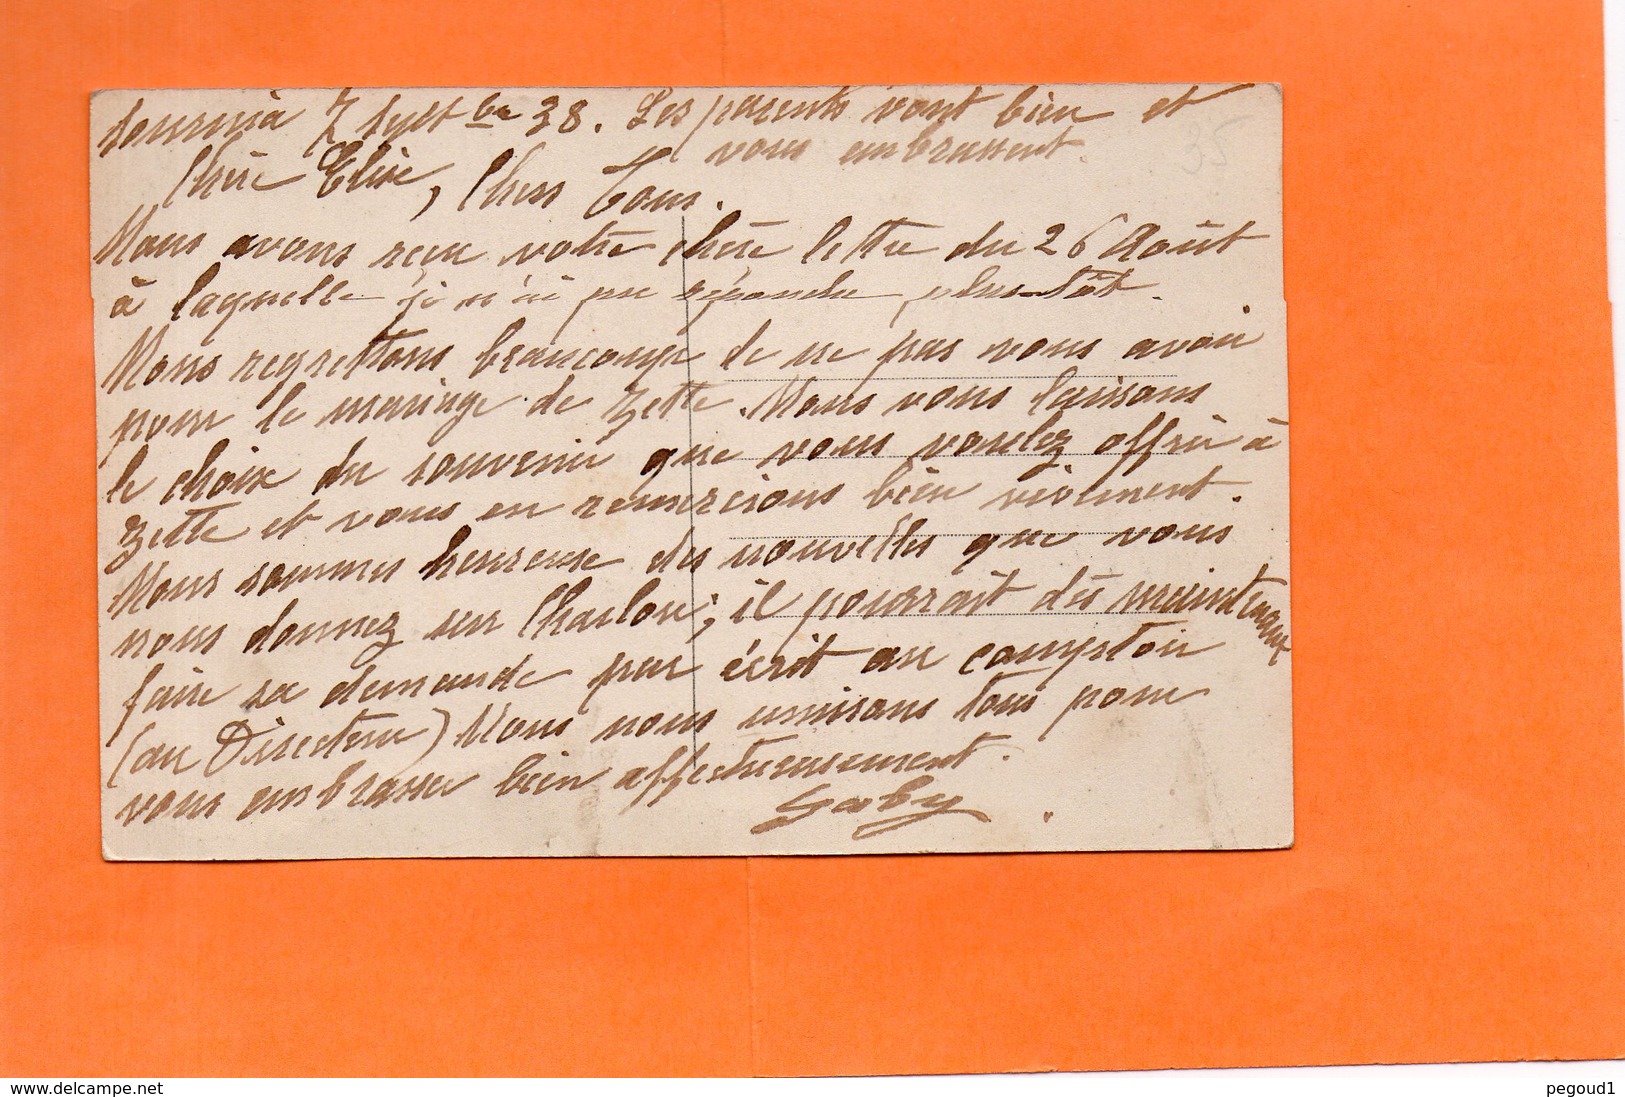 7 Sept bre 38. Les parents vont bien et
vous embrassent.
Chère Elise, Chers Tous.
Nous avons reçu votre chère lettre du 26 Août
à laquelle je n'ai pu répondre plus tôt.
Nous regrettons beaucoup de ne pas vous avoir
pour le mariage de Zette. Nous vous laissons
le choix du souvenir que vous voulez offrir à
Zette et vous en remercions bien vivement.
Nous sommes heureuse des nouvelles que vous
nous donnez sur Charlou; il pourrait dès maintenant
faire sa demande par écrit au comptoir
(au Directeur) Nous nous unissons tous pour
vous embrasser bien affectueusement.
Gaby
www.delcampe.net
pegoud1